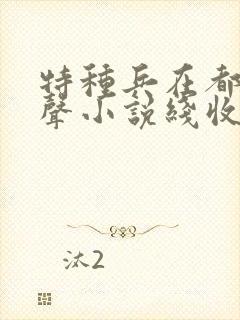 特種兵在都
聲小說綫收
汰2